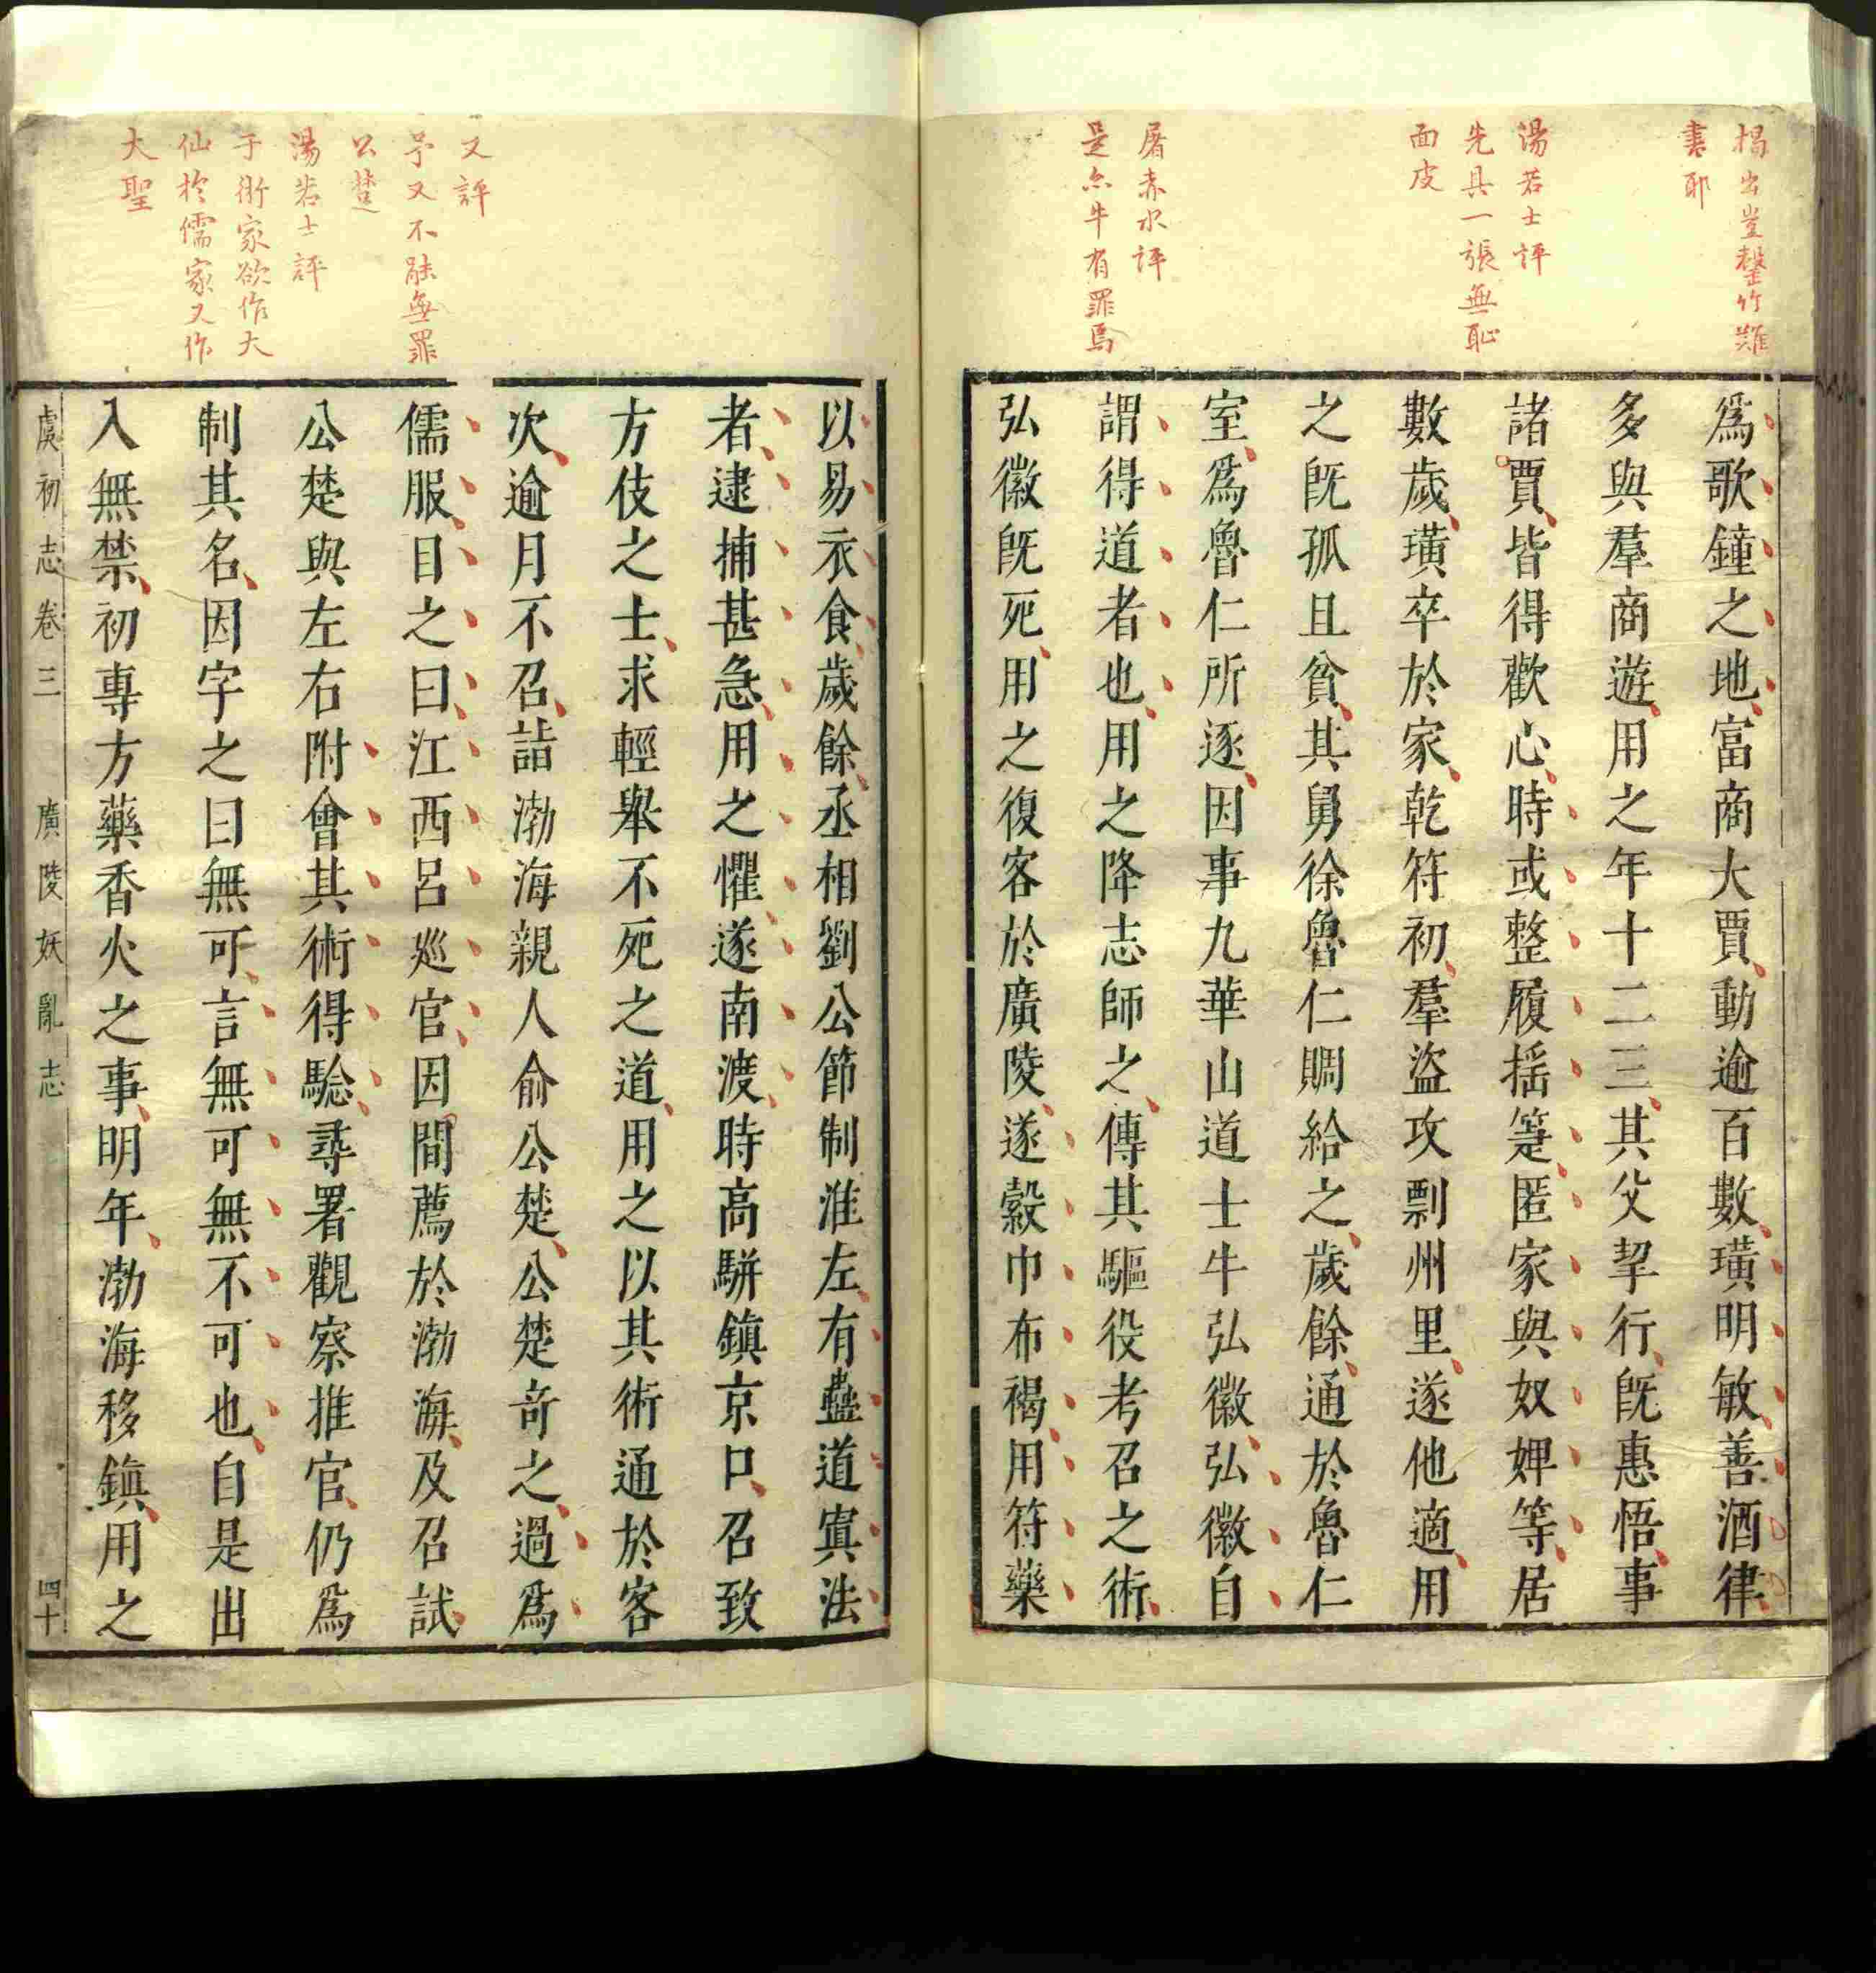 揭出豈罄竹難
書耶
湯若士評
先具一張無恥
面皮
屠赤水評
是亦牛有罪焉
爲歌鐘之地富商大賈動逾百數璜明敏善酒律
多與羣商遊用之年十二三其父挈行既惠悟事
諸賈皆得歡心時或整履搖箑匿家與奴婢等居
數歲璜卒於家乾符初羣盜攻剽州里遂他適用
之既孤且貧其舅徐魯仁賙給之歲餘通於魯仁
室爲魯仁所逐因事九華山道士牛弘徽弘徽自
謂得道者也用之降志師之傳其驅役考召之術
弘徽既死用之復客於廣陵遂縠巾布褐用符藥
又評
予又不能無罪
公楚
湯若士評
于術家欲作大
仙於儒家又作
大聖
以易衣食歲餘丞相劉公節制淮左有蠱道寘法
者逮捕甚急用之懼遂南渡時高駢鎮京口召致
方伎之士求輕舉不死之道用之以其術通於客
次逾月不召詣渤海親人俞公楚公楚奇之過爲
儒服目之曰江西呂巡官因間薦於渤海及召試
公楚與左右附會其術得驗尋署觀察推官仍爲
制其名因字之曰無可言無可無不可也自是出
入無禁初專方藥香火之事明年渤海移鎮用之
虞初志卷三 廣陵妖亂志 四十